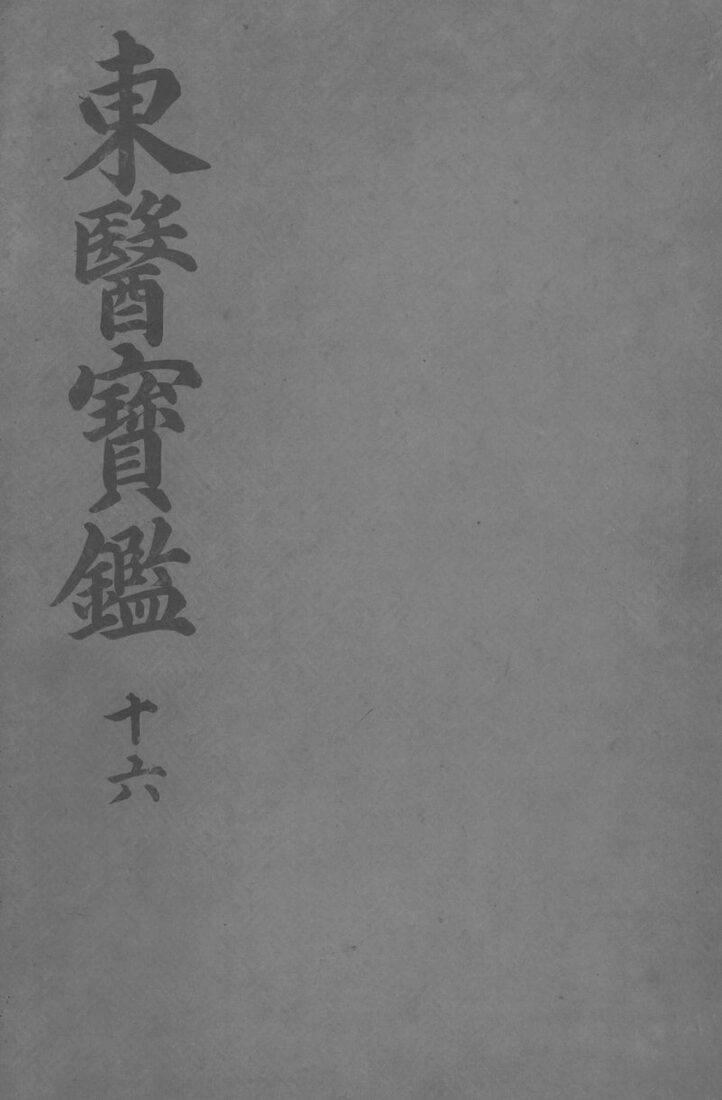 東醫寶鑑
十六